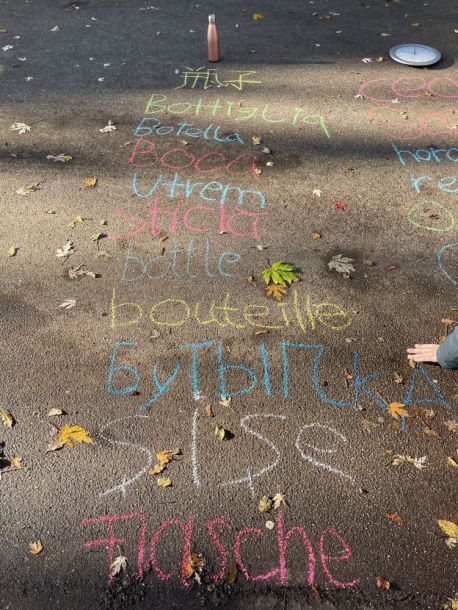 瓶子
BOTTIGLIA
Botella
BOCA
Utrem
sticla
bottle
bouteille
БуТЫЛКА
ŞIŞe
Flasche